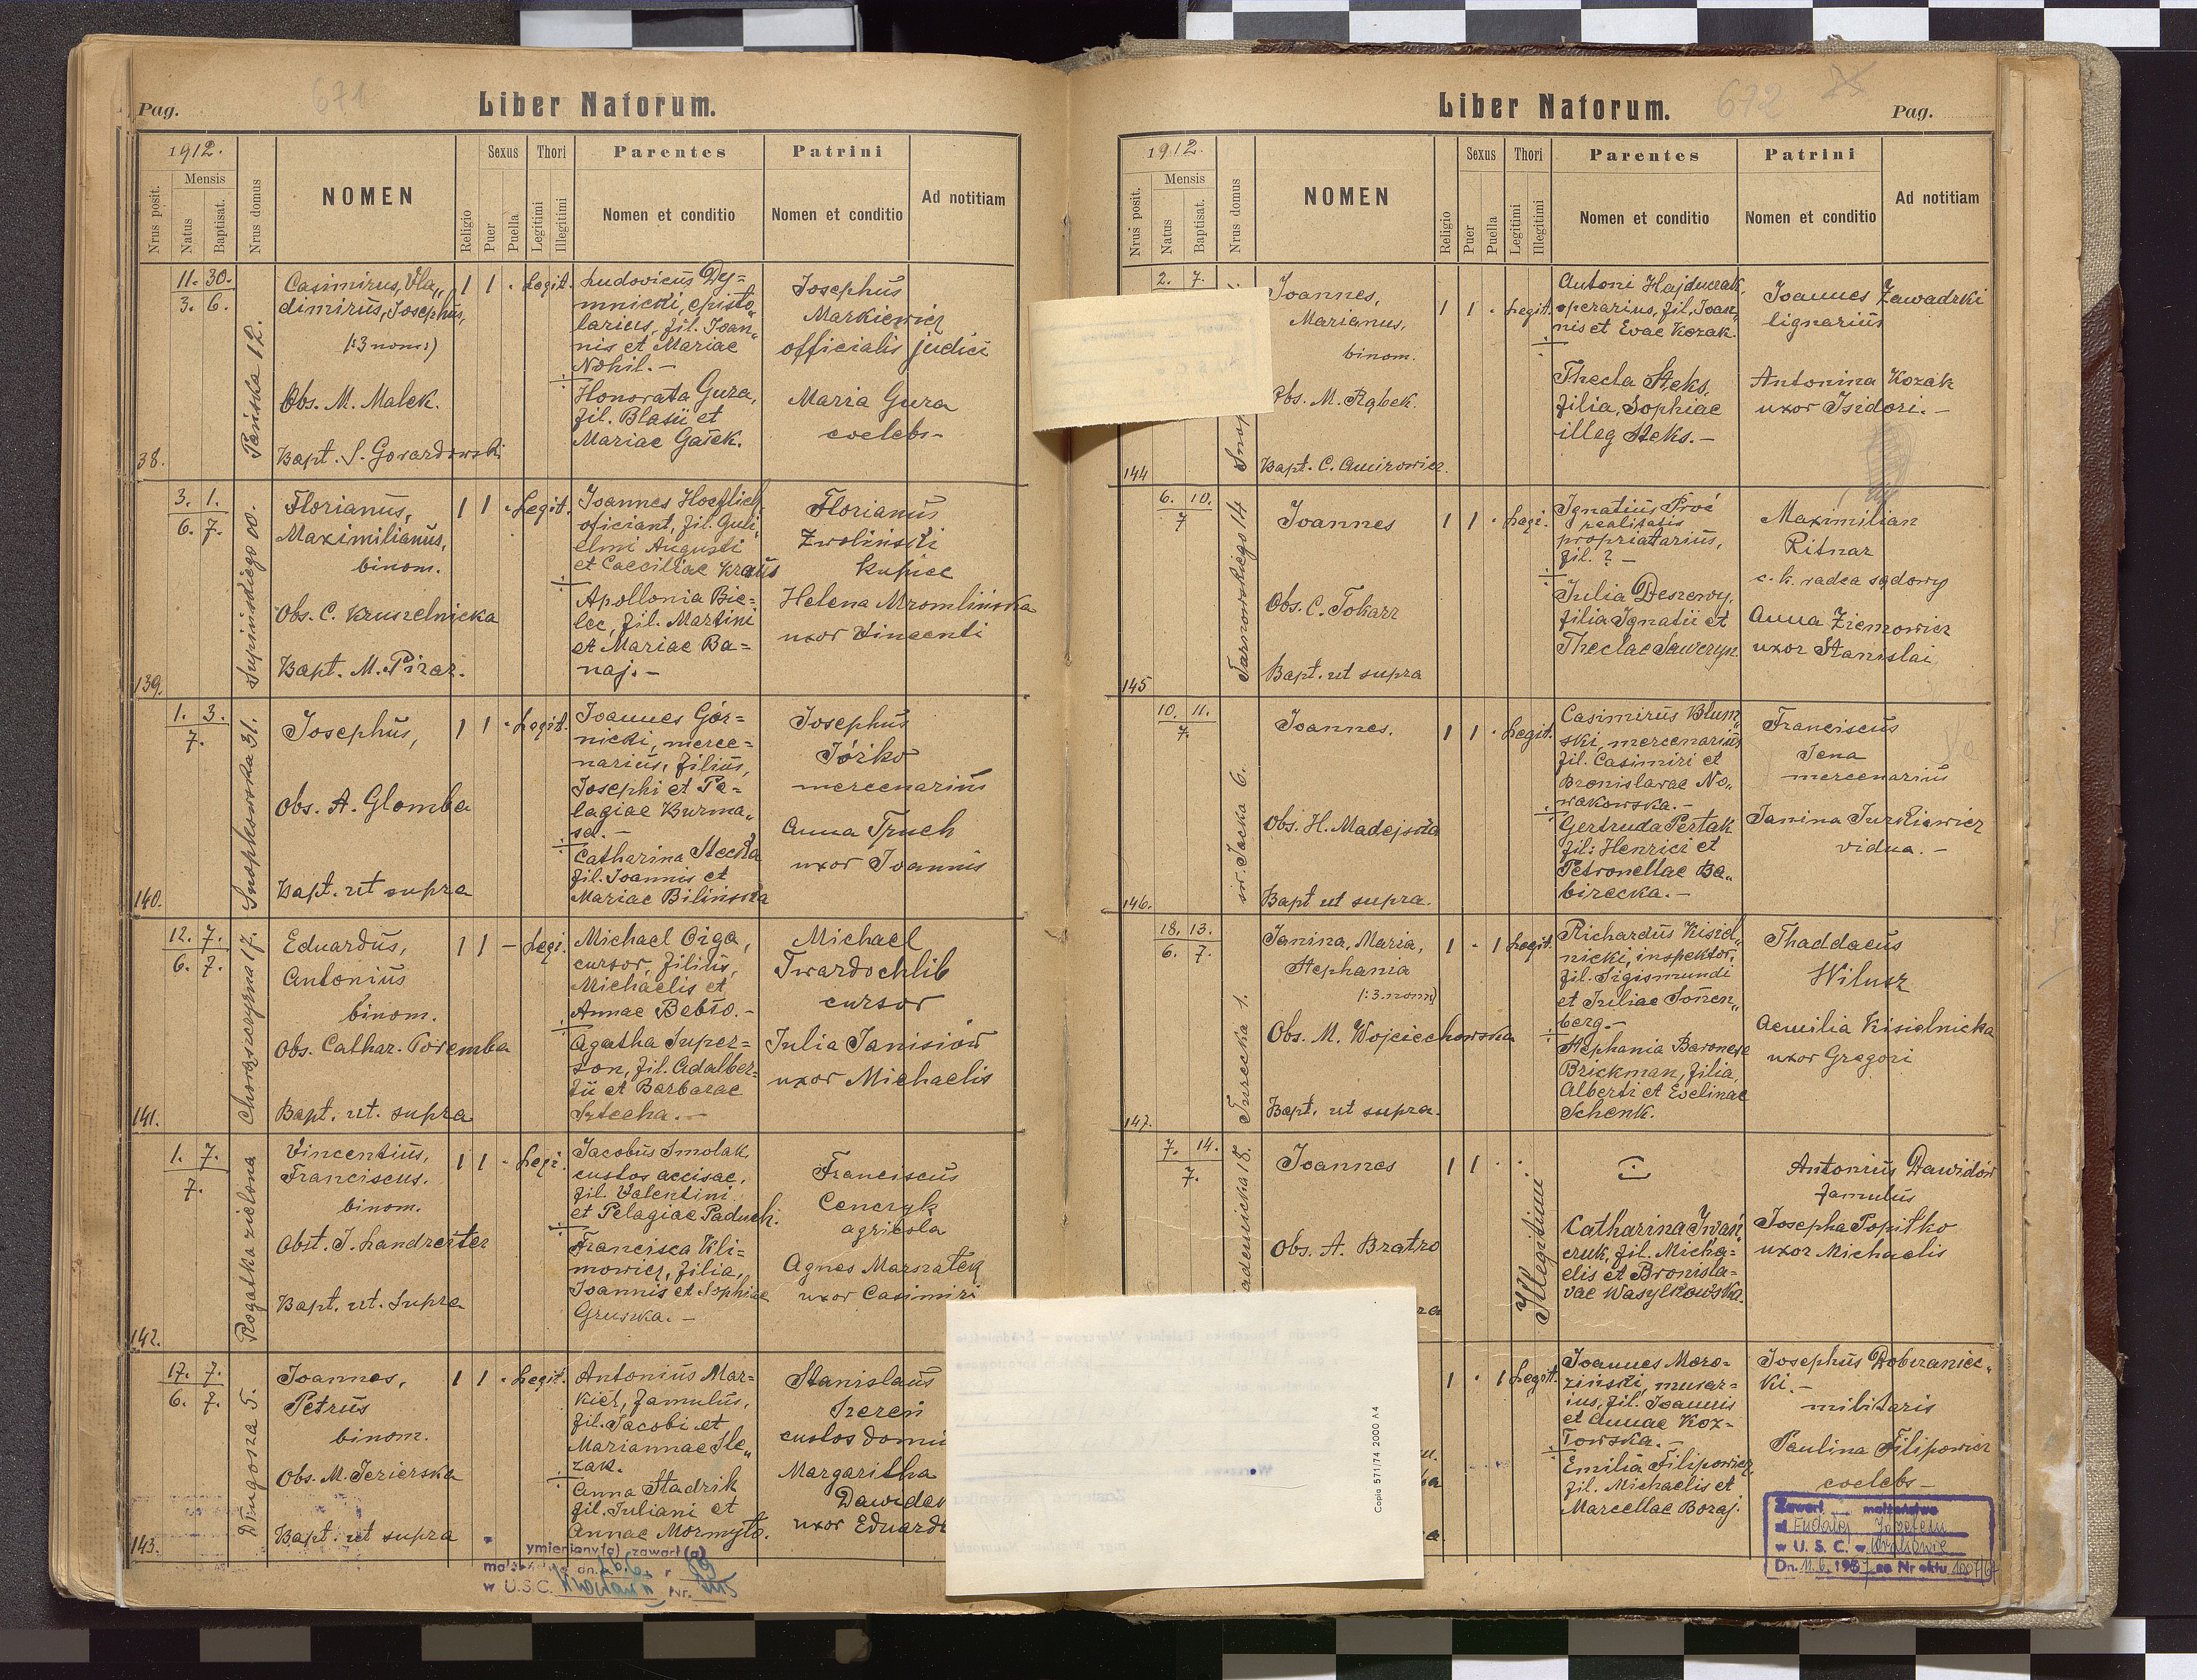 Pag.
671
Liber Natorum.
1912.
Nrus posit.
Mensis
Natus
Baptisat.
Nrus domus
NOMEN
Religio
Sexus
Puer
Puella
Thori
Legitimi
Illegitimi
Parentes
Nomen et conditio
Patrini
Nomen et conditio
Ad notitiam
38.
11. 30.
3. 6.
12.
Casimirus, Vla„
dimirus, Josephus,
(:3 nom:)
Obs. M. Malek.
Bapt. S. Gorardowski
1 1 · Legit.
Ludovicus Dy=
mnicki, episto„
larius, fil. Joan„
nis et Mariae
Nohil. –
Honorata Gura,
fil. Blasii et
Mariae Gasek.
Josephus
Markiewicz
officialis judici
Maria Gura
coelebs –
139.
3. 1.
6. 7.
Supinskiego 00.
Florianus,
Maximilianus,
binom.
Obs. C. Kruszelnicka
Bapt. M. Pirar.
1 1 · Legit.
Joannes Hoeflich,
oficiant, fil. Guli
elmi Augusti
et Caeciliae Kraus
Apollonia Bie=
lec, fil. Martini
et Mariae Ba=
naj. –
Florianus
Zwolinski
kupiec
Helena Mromlińska
uxor Vincenti
140.
1. 3.
7.
Snopkowska 31.
Josephus,
Obs. A. Glomba
Bapt. ut supra
1 1 · Legit.
Joannes Gór=
nicki, merce=
narius, filius,
Josephi et Pe=
lagiae Kurma„
sa. –
Catharina Stecka
fil. Joannis et
Mariae Bilinska
Josephus
Jórko
mercenarius
Anna Truch
uxor Joannis
141.
12. 7.
6. 7.
Chorąszczyzna 17.
Eduardus,
Antonius
binom.
Obs. Cathar. Poremba
Bapt. ut. supra
1 1 – Legi.
Michael Oiga,
cursor, filius,
Michaelis et
Annae Bebło. –
Agatha Super=
son, fil. Adalber=
tii et Barbarae
Sztecha. –
Michael
Twardochlib
cursor
Julia Janisiów
uxor Michaelis
142.
1. 7.
7.
Rogatka zielona
Vincentius,
Franciscus.
binom.
Obst. J. Landreiter
Bapt. ut. Supra
1 1 - Legi.
Jacobus Smolak
custos accisae,
fil. Valentini
et Pelagiae Paduch.
Francisca Kli=
mowicz, filia,
Joannis et Sophiae
Gruszka. –
Franciscus
Cenczyk
agricola
Agnes Marszałek
uxor Casimiri
143.
17. 7.
6. 7.
Długosza 5.
Joannes,
Petrus
binom.
Obs. M. Jezierska
Bapt. ut supra
1 1 · Legit.
Antonius Mar=
kier, famulus,
fil. Jacobi et
Mariannae Sle„
zak.
Anna Stadnik
fil. Juliani et
Annae Mormyło.
Stanislaus
Szeren
custos domu
Margaritha
Dawidow
uxor Eduardi
ymieniony(a) zawarł(a)
w U.S.C. Nr.
Liber Natorum.
672
Pag.
1912.
Nrus posit.
Mensis
Natus
Baptisat.
Nrus domus
NOMEN
Religio
Sexus
Puer
Puella
Thori
Legitimi
Illegitimi
Parentes
Nomen et conditio
Patrini
Nomen et conditio
Ad notitiam
144
2. 7.
Snop
Joannes,
Marianus,
binom.
Obs. M. Rąbek.
Bapt. C. Amirowicz.
1 1 · Legit.
Antoni Hajduczak,
operarius, fil. Joan„
nis et Evae Kozak.
Thecla Steks,
filia, Sophiae
illeg Steks. –
Joannes Zawadzki
lignarius
Antonina Kozak
uxor Isidori. –
145
6. 10.
7
Tarnowskiego 14
Joannes
Obs. C. Tokarz
Bapt. ut supra
1 1 · Legi.
Ignatius Proć
realitatis
propriatarius,
fil. ? –
Julia Deszewy,
filia Ignatii et
Theclae Saweryn.
Maximilian
Ritnar
c. k. radca sądowy
Anna Ziemowicz
uxor Stanislai
146.
10. 11.
7.
św. Jacka 6.
Joannes.
Obs. H. Madejska
Bapt ut supra.
1 1 · Legit.
Casimirus Blum„
ski, mercenarius
fil. Casimiri et
Bronislavae No„
wakowska. –
Gertruda Pertak
fil: Henrici et
Petronellae Ba„
birecka. –
Franciscus
Jena
mercenarius
Janina Jurkiewicz
vidua. –
147.
18. 13.
6. 7.
Turecka 1.
Janina, Maria,
Stephania
(:3 nom:)
Obs. M. Wojciechowska
Bapt. ut supra.
1 · 1 Legit.
Richardus Kisiel„
nicki, inspektor,
fil. Sigismundi
et Juliae Sonen„
berg –
Stephania Baronese
Brickman, filia,
Alberti et Evelinae
Schenk.
Thaddaeus
Wilusz
Aemilia Kisielnicka
uxor Gregori
7. 14.
7.
18.
Joannes
Obs. A. Bratro
1 1 ·
Illegitimi
Catharina Iwań
czuk, fil. Micha=
elis et Bronisla=
vae Wasylkowska.
Antonius Dawidów
famulus
Josepha Popitko
uxor Michaelis
1 · 1 Legit.
Joannes Moro=
zinski, murar=
ius, fil. Joannis
et Annae Koz=
łowska. –
Emilia Filipowicz,
fil. Michaelis et
Marcellae Boraj.
Josephus Dobrzaniec„
ki. –
militaris
Paulina Filipowicz
coelebs –
Zawarł małżeństwo
w U. S. C. w
Dn. 11.6.1937 za Nr aktu
Copia 571/74 2000 A4